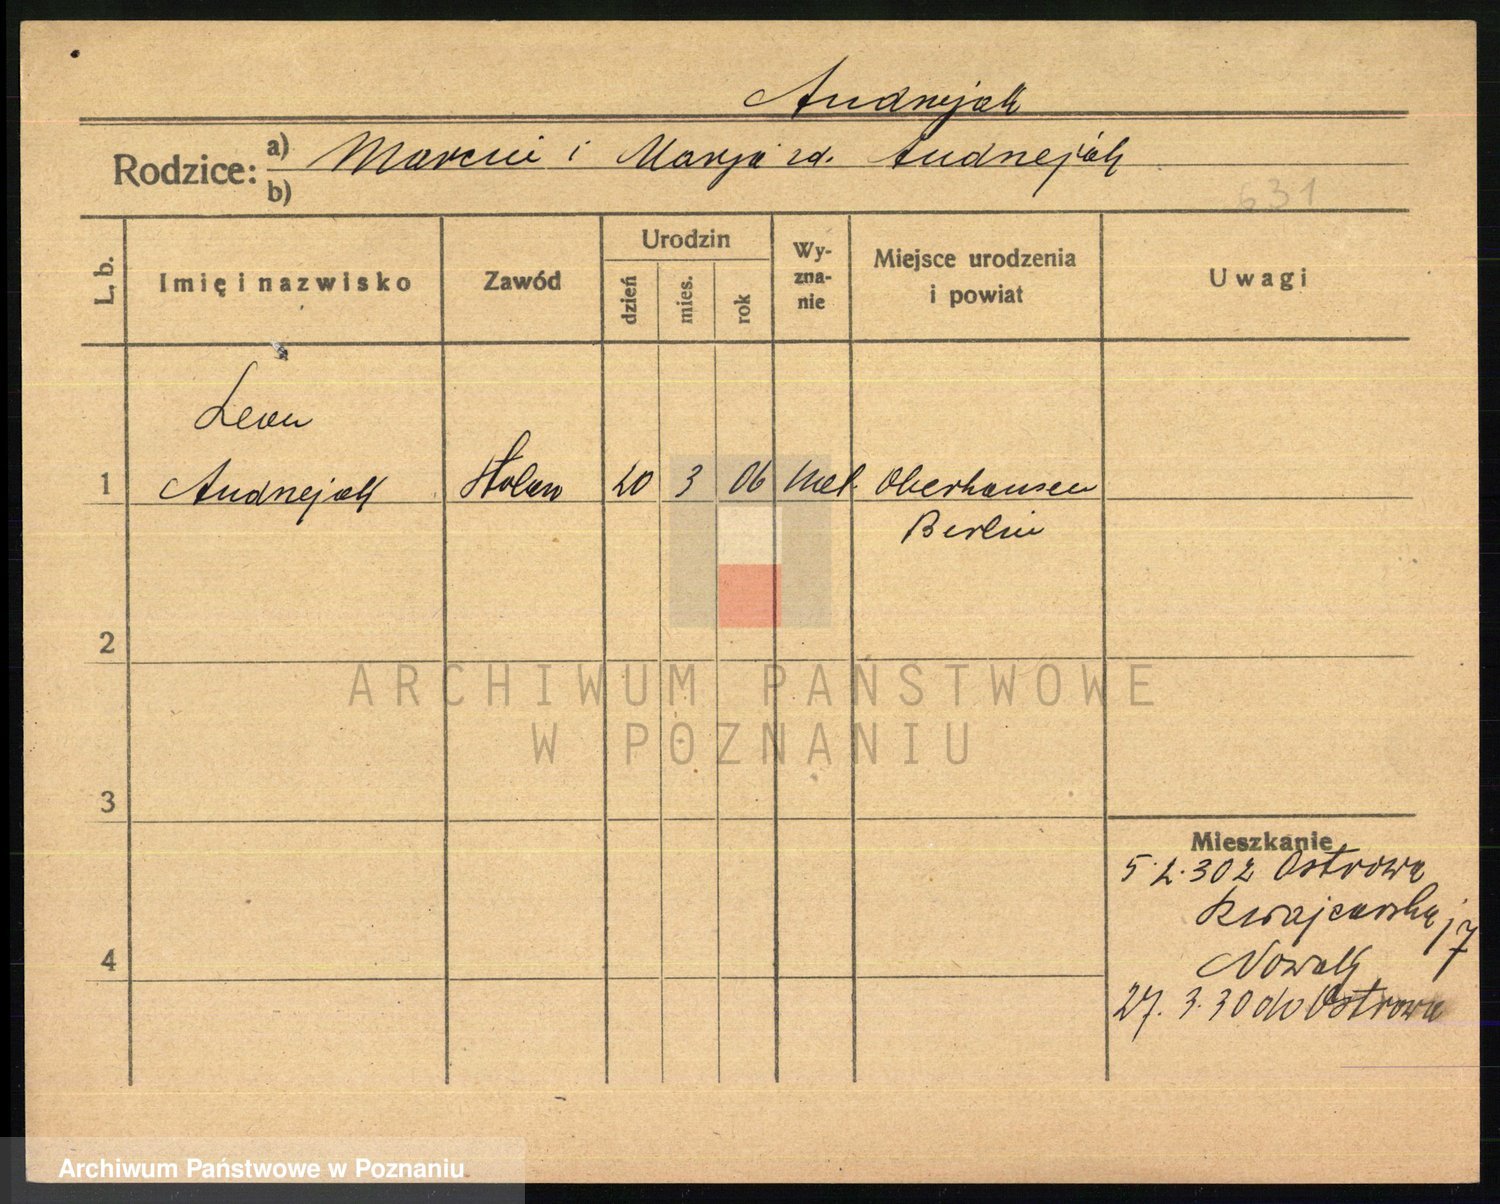 Andrzejak
Rodzice: a) Marcin i Marja zd. Andrzejak
b)
631
L. b.
Imię i nazwisko
Zawód
Urodzin
dzień
mies.
rok
Wy-
zna-
nie
Miejsce urodzenia
i powiat
Uwagi
Leon
1 Andrzejak Stolarz 20 3 06 kat. Oberhausen
Berlin
2
ARCHIWUM PAŃSTWOWE
W POZNANIU
3
Mieszkanie
5.2.30 z Ostrowa
17
4
Nowak
27.3.30 do Ostrowa
Archiwum Państwowe w Poznaniu